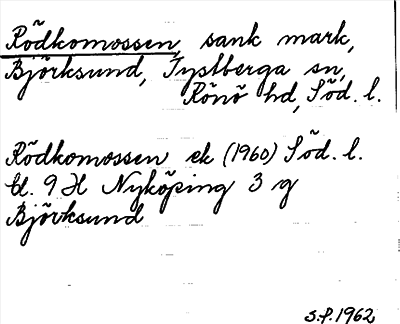 Rödkomossen, sank mark,
Björksund, Tystberga sn,
Rönö hd, Söd. l.
Rödkomossen ek (1960) Söd. l.
bl. 9 H Nyköping 3 g
Björksund
S.P. 1962